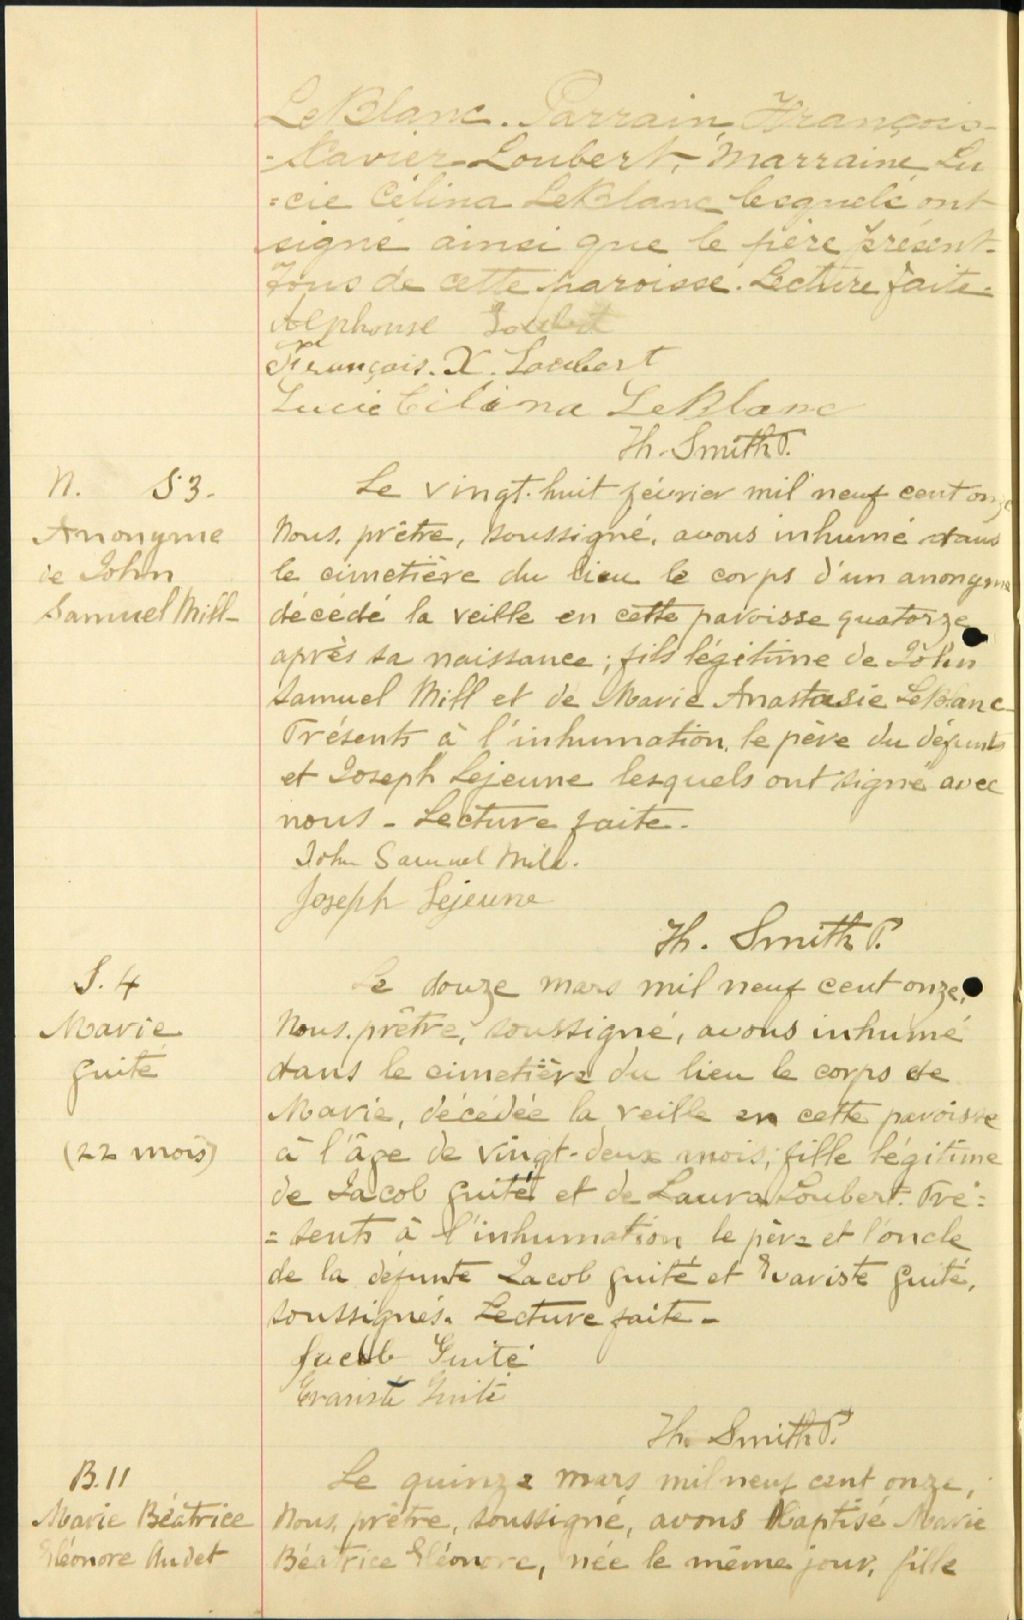 LeBlanc. Parrain, François-
-Xavier Loubert, Marraine, Lu
=cie Célina LeBlanc lesquels ont
signé ainsi que le père présent.
Tous de cette paroisse. Lecture faite.
Alphonse Loubert
François. X. Loubert
Lucie Célina LeBlanc
Th. Smith P.
N. S 3.
Anonyme
de John
Samuel Mill-
Le vingt-huit février mil neuf cent onze
Nous, prêtre, soussigné, avons inhumé dans
le cimetière du lieu le corps d'un anonyme
décédé la veille en cette paroisse quatorze
après sa naissance; fils légitime de John
Samuel Mill et de Marie Anastasie LeBlanc
Présents à l'inhumation, le père du défunts
et Joseph Lejeune lesquels ont signé avec
nous - Lecture faite.
John Samuel Mill.
Joseph Lejeune
Th. Smith P.
S. 4
Marie
Guité
(22 mois)
Le douze mars mil neuf cent onze,
Nous, prêtre, soussigné, avons inhumé
dans le cimetière du lieu le corps de
Marie, décédée la veille en cette paroisse
à l'âge de vingt-deux mois; fille légitime
de Jacob Guité et de Laura Loubert. Pré=
=sents à l'inhumation le père et l'oncle
de la défunte Jacob Guité et Evariste Guité,
soussignés. Lecture faite -
Jacob Guité
Evariste Guité
Th. Smith P.
B. 11
Marie Béatrice
Eléonore Audet
Le quinze mars mil neuf cent onze,
Nous, prêtre, soussigné, avons baptisé Marie
Béatrice Eléonore, née le même jour, fille